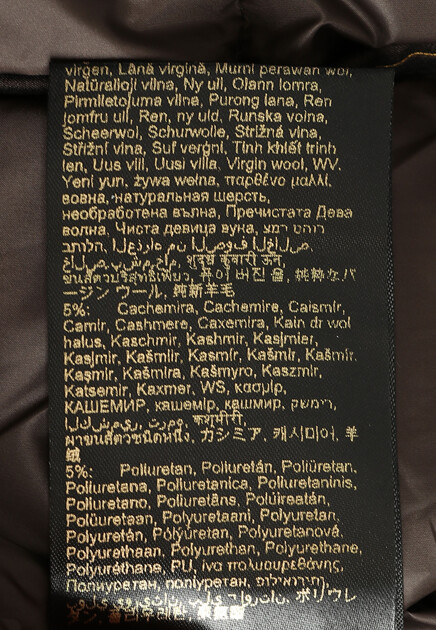 virgen, Lână virgină, Murni perawan wol,
Natūralioji vilna, Ny ull, Olann lomra,
Pirmlietojuma vilna, Purong lana, Ren
jomfru ull, Ren, ny uld, Runska volna,
Scheerwol, Schurwolle, Strižná vlna,
Střižní vlna, Suf verġni, Tinh khiết trinh
len, Uus vill, Uusi villa, Virgin wool, WV,
Yeni yun, żywa wełna, παρθένο μαλλί,
вовна, натуральная шерсть,
необработена вълна, Пречистата Дева
волна, Чиста девица вуна,
العذراء من الصوف الخالص,
शुद्ध कुंवारी ऊन,
퓨어 버진 울, 純粋なバ
ージン ウール, 纯新羊毛
5%: Cachemira, Cachemire, Caismír,
Camir, Cashmere, Caxemira, Kain dr wol
halus, Kaschmir, Kashmir, Kasjmier,
Kasjmir, Kašmiir, Kasmír, Kašmír, Kašmir,
Kaşmir, Kašmira, Kašmyro, Kaszmir,
Katsemir, Kaxmer, WS, κασμίρ,
КАШЕМИР, кашемір, кашмир, קשמיר,
الكشمير, ترمه, कश्मीरी,
ผ้าขนสัตว์ชนิดหนึ่ง, カシミア, 캐시미어, 羊
绒
5%: Poliuretan, Poliuretán, Poliüretan,
Poliuretana, Poliuretanica, Poliuretaninis,
Poliuretano, Poliuretāns, Polúireatán,
Polüuretaan, Polyuretaani, Polyuretan,
Polyuretán, Pólýúretan, Polyuretanová,
Polyurethaan, Polyurethan, Polyurethane,
Polyuréthane, PU, ίνα πολυουρεθάνης,
Полиуретан, поліуретан, פוליאוריתן,
ポリウレ
タン, 폴리우레탄,